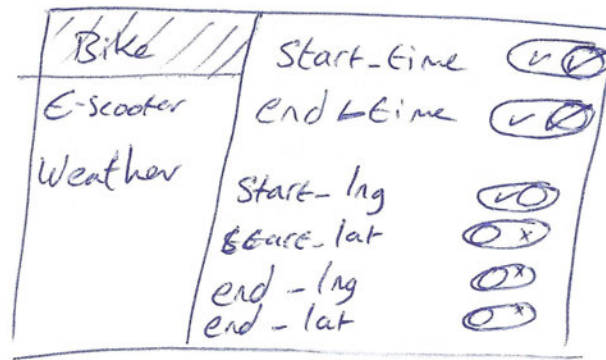 Bike
E-scooter
Weather
Start_time
end_time
Start_lng
start_lat
end_lng
end_lat